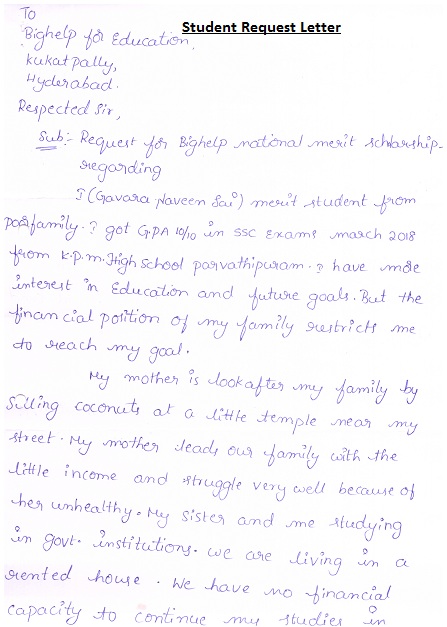 Student Request Letter
To
Bighelp for Education,
kukatpally,
Hyderabad.
Respected Sir,
Sub:- Request for Bighelp national merit schlarship-
regarding
I (Gavara Naveen Sai) merit student from
poor family. I got GPA 10/10 in SSC Exams march 2018
from K.P.M. High School parvathipuram. I have more
interest in Education and future goals. But the
financial position of my family restricts me
to reach my goal.
My mother is look after my family by
Silling coconuts at a little temple near my
street. My mother leads our family with the
little income and struggle very well because of
her unhealthy. My sister and me studying
in govt. institutions. we are living in a
rented house. We have no financial
capacity to continue my studies in